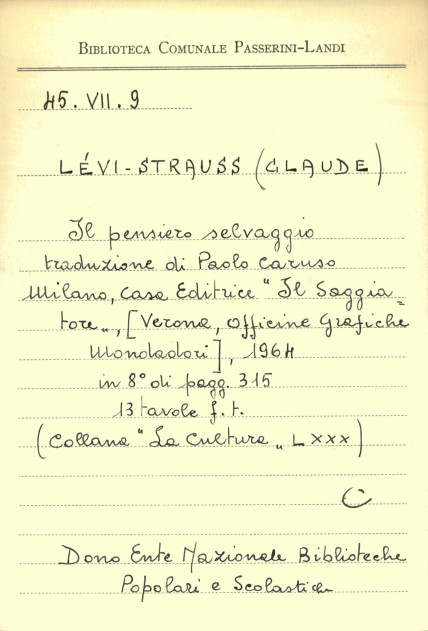 BIBLIOTECA COMUNALE PASSERINI-LANDI
45. VII. 9
LÉVI-STRAUSS (CLAUDE)
Il pensiero selvaggio
traduzione di Paolo Caruso
Milano, Casa Editrice "Il Saggia=
tore", [Verona, Officine Grafiche
Mondadori], 1964
in 8° di pagg. 315
13 tavole f. t.
(Collana "La Cultura" LXXX)
C
Dono Ente Nazionale Biblioteche
Popolari e Scolastiche